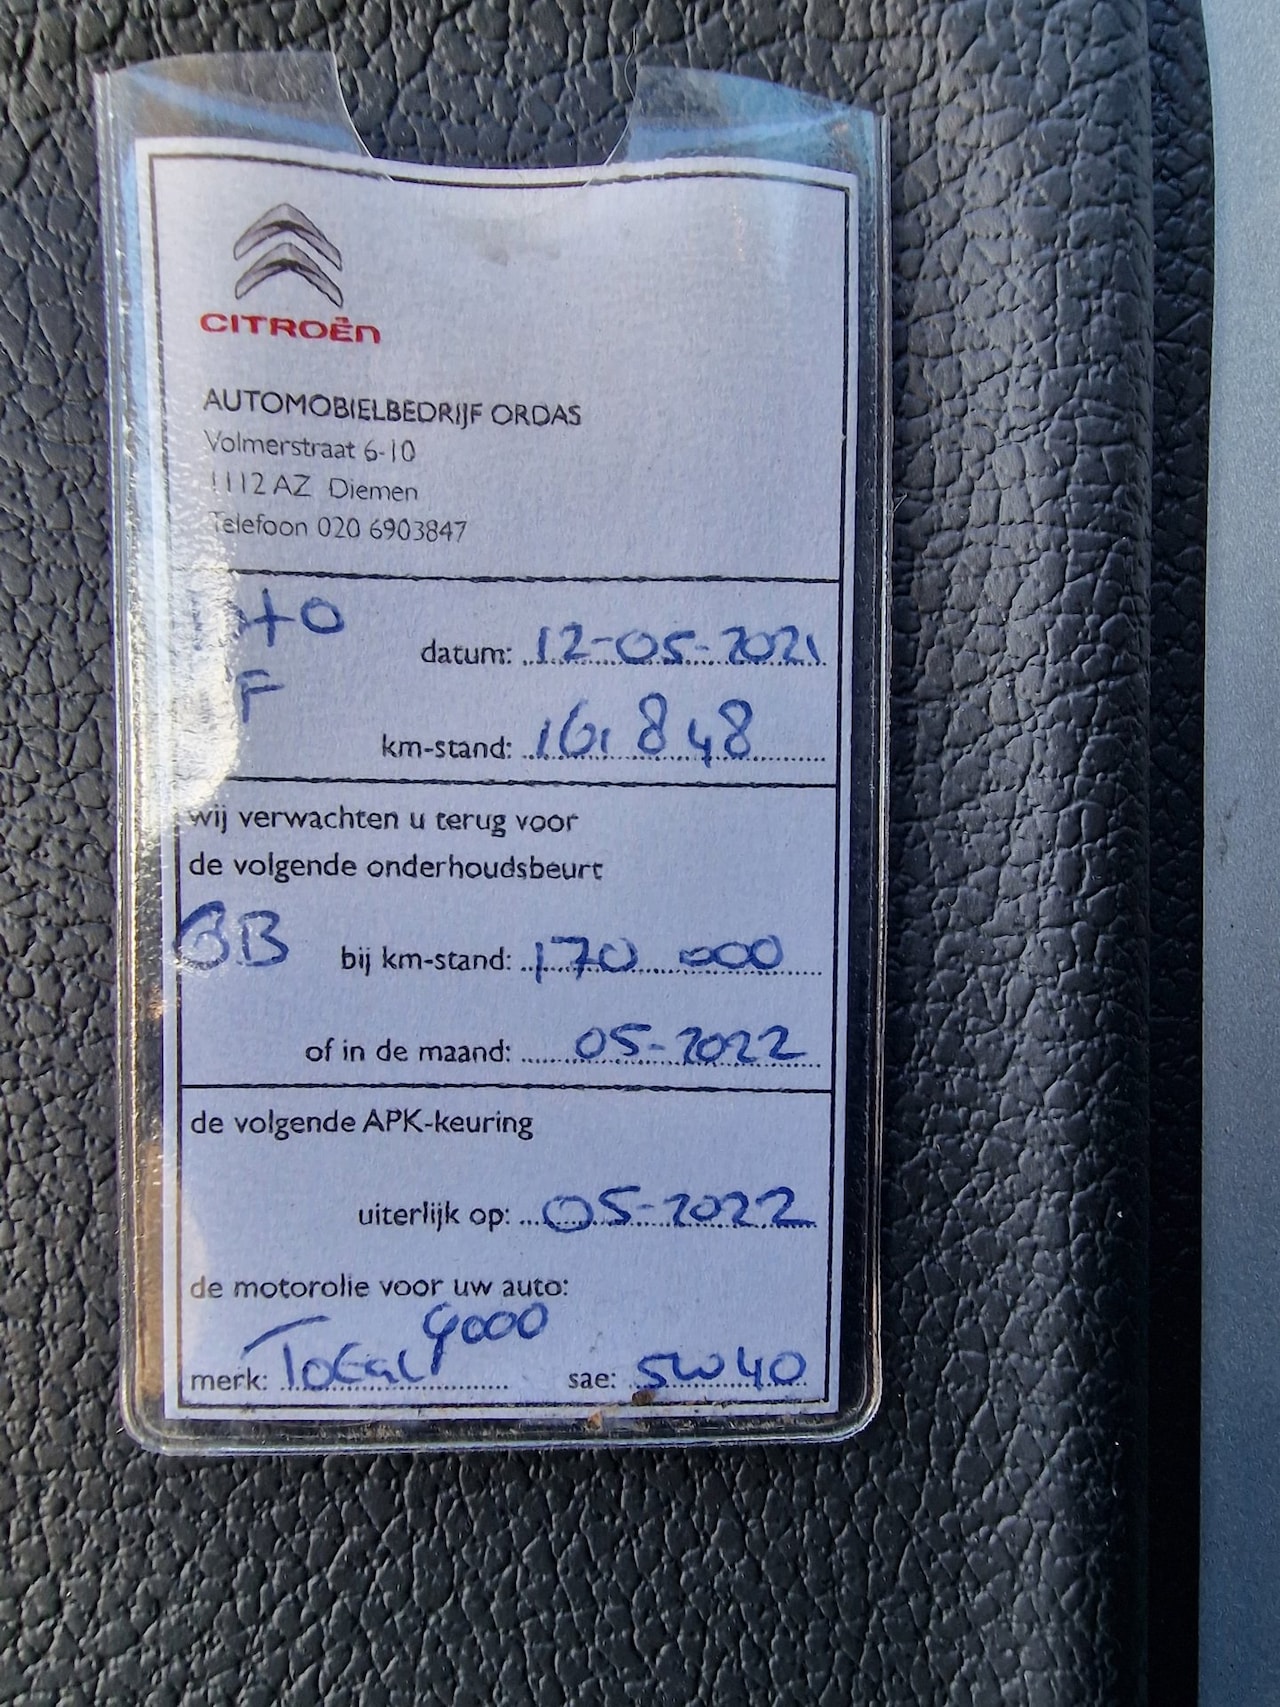 CITROËN
AUTOMOBIELBEDRIJF ORDAS
Volmerstraat 6-10
1112 AZ Diemen
Telefoon 020 6903847
datum: 12-05-2021
F
km-stand: 161848
wij verwachten u terug voor
de volgende onderhoudsbeurt
bij km-stand: 170 000
of in de maand: 05-2022
de volgende APK-keuring
uiterlijk op: 05-2022
de motorolie voor uw auto:
merk: Total 9000 sae: 5W40